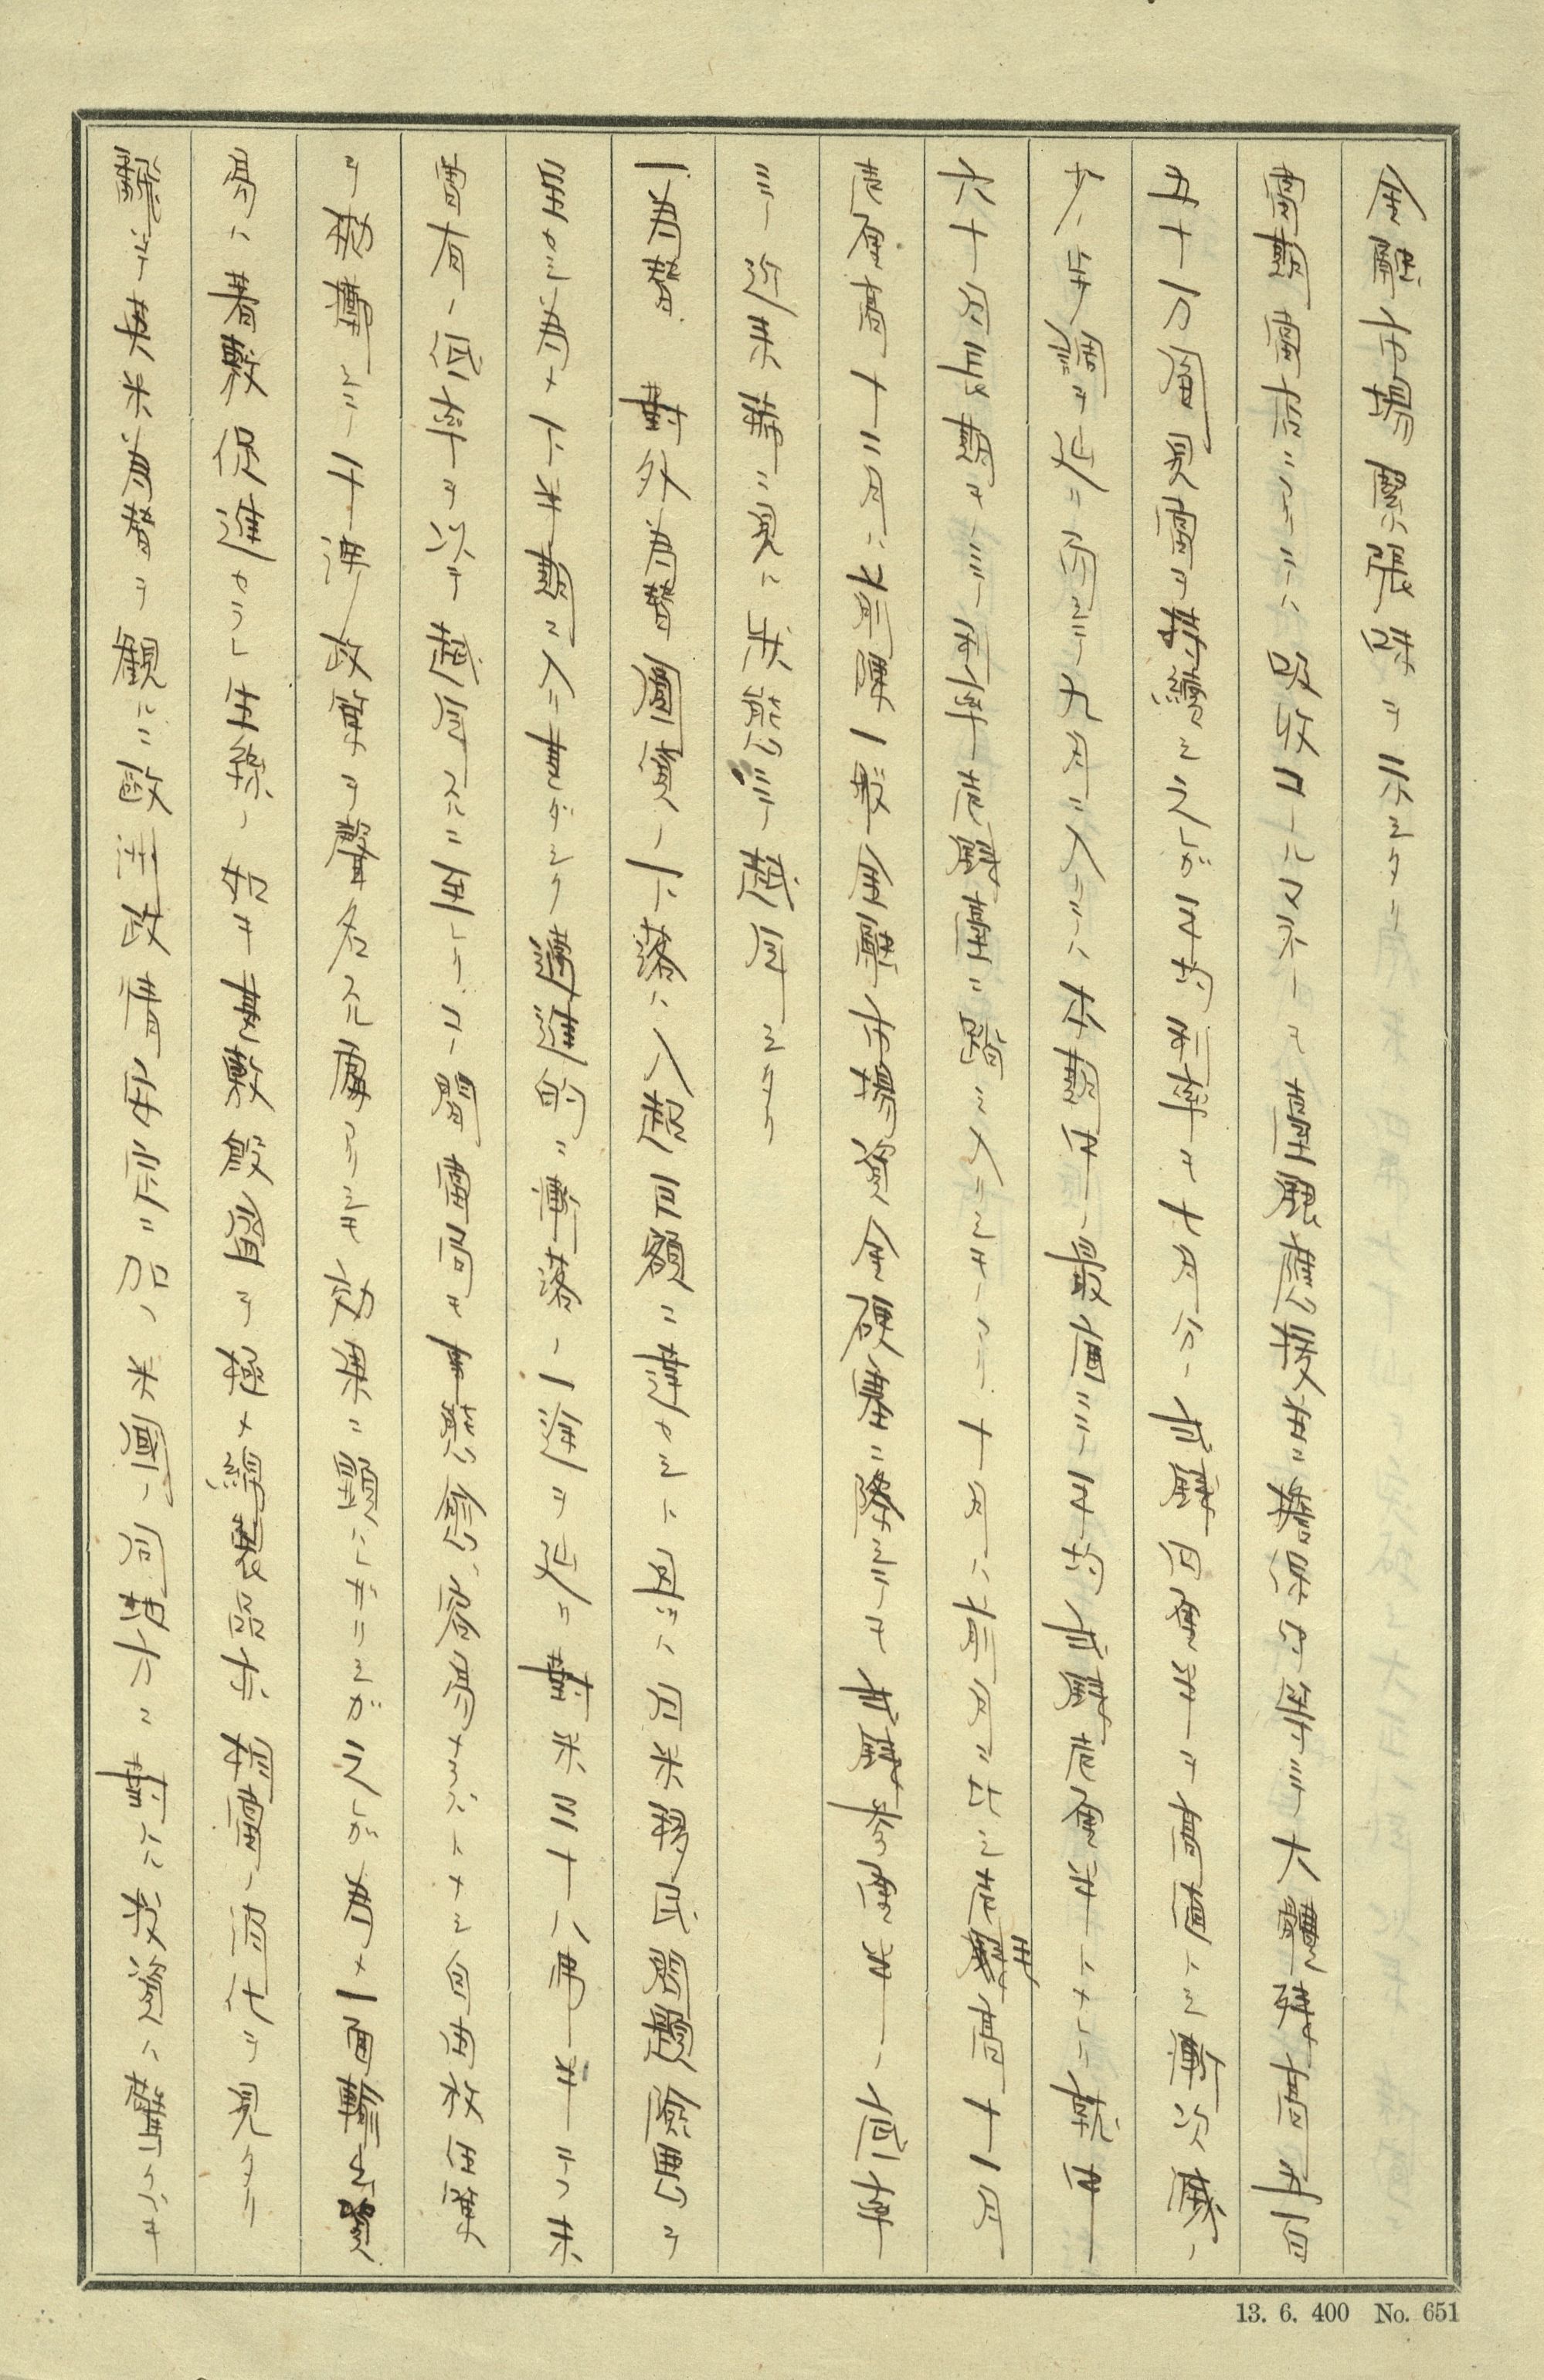 金融市場緊張味ヲ示シタリ
當期當店ニアリテハ吸收コールマネーモ臺銀應援為ニ擔保内等ニテ大體残高五百
五十万圓見當ヲ持續シタルガ平均利率モ七月分ノ弐銭四厘半ヲ高値トシ漸次減
少ノ歩調ヲ辿リ而シテ九月ニ入リテハ本期中ノ最値ニテ平均弐銭壱厘半トナレリ就中
六十日長期モノニテ年率壱銭臺ニ踏ミ入リシモノアリ十月ハ前月ニ比シ壱厘高十一月
壱厘高十二月ハ年末一般金融市場資金硬塞ニ際シテモ弐銭参厘半ノ底率
ニテ近来稀ニ見ル状態ニテ越年シタリ
一、為替　對外為替圓貨ノ下落ハ入超巨額ニ達セシト且ツハ日米移民問題險悪ヲ
呈セシ為メ下半期ニ入リ甚ダシク躍進的ニ漸落ノ一途ヲ辿リ對米三十八弗半テフ未
曾有ノ低率ヲ以テ越年スルニ至レリ コノ間當局モ事態ノ容易ナラズトナシ自由放任策
ヲ拋棄シテ干渉政策ヲ聲名荒膚ナリシモ効果ニ顕ハレザリシガ之レガ為メ一面輸出貿
易ハ着敷促進セラレ生絲ノ如キ甚敷殷盛ヲ極メ綿製品亦相當ノ活化ヲ見タリ
飜テ英米為替ヲ観ルニ欧洲政情安定ニ加ヘ米國ノ同地方ニ對スル投資ハ尠カラズ